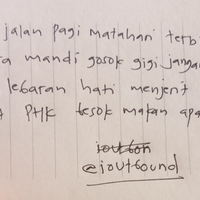 jalan pagi matahari terb
a mandi gosok gigi jangan
lebaran hati menjerit
PHK besok makan apa
@ioutbound